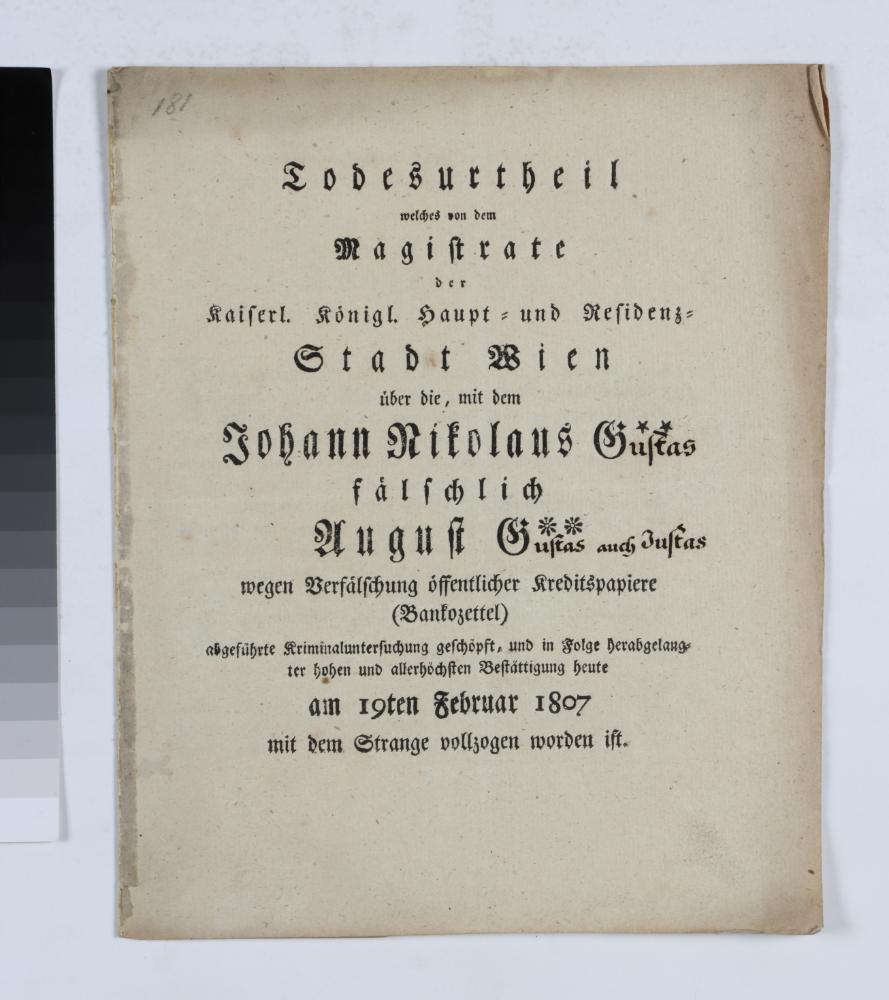 181
Todesurtheil
welches von dem
Magistrate
der
Kaiserl. Königl. Haupt- und Residenz-
Stadt Wien
über die, mit dem
Johann Nikolaus G**ustas
fälschlich
August G**ustas auch Justas
wegen Verfälschung öffentlicher Kreditspapiere
(Bankozettel)
abgeführte Kriminaluntersuchung geschöpft, und in Folge herabgelang-
ter hohen und allerhöchsten Bestättigung heute
am 19ten Februar 1807
mit dem Strange vollzogen worden ist.